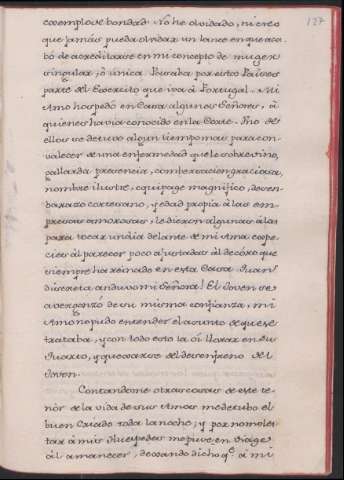 127
exemplo de bondad. No he olvidado, ni creo
que jamás pueda olvidar un lance en que aca-
bó de acreditarse en mi concepto de muger
singular, ò única. Pasaba por estos Países
parte del Exercito que iva á Portugal. Mi
Amo hospedó en Casa algunos Señores, á
quienes havia conocido en la Corte. Uno de
ellos se detuvo algun tiempo mas para con-
valecer de una enfermedad que le sobrevino,
gallarda presencia, conversacion graciosa,
nombre ilustre, equipage magnifico, desem-
barazo cortesano, y edad propia á las em-
presas amorosas, le dieron algunas alas
para tocar un dia delante de mi Ama espe-
cies al parecer poco ajustadas al decóro que
siempre ha reinado en esta Casa. Quan
discreta anduvo mi Señora! El Joven se
avergonzó de su misma confianza, mi
Amo no pudo entender el asunto de que se
trataba, y con todo esto la oí llorar en su
Quarto, y quexarse del desenfreno del
Joven.
Contandome otras cosas de este te-
nòr de la vida de sus Amos me detubo el
buen Criado toda la noche, y por no moles-
tar à mis Huespedes me puse en viage
al amanecer, dexando dicho q.^e á mi